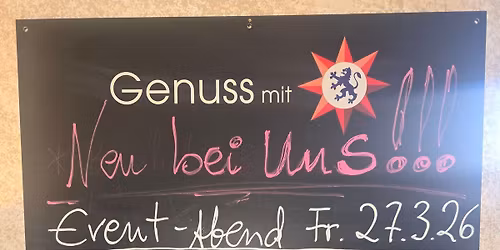 Genuss mit
Neu bei uns!!!
Event-Abend Fr. 27.3.26